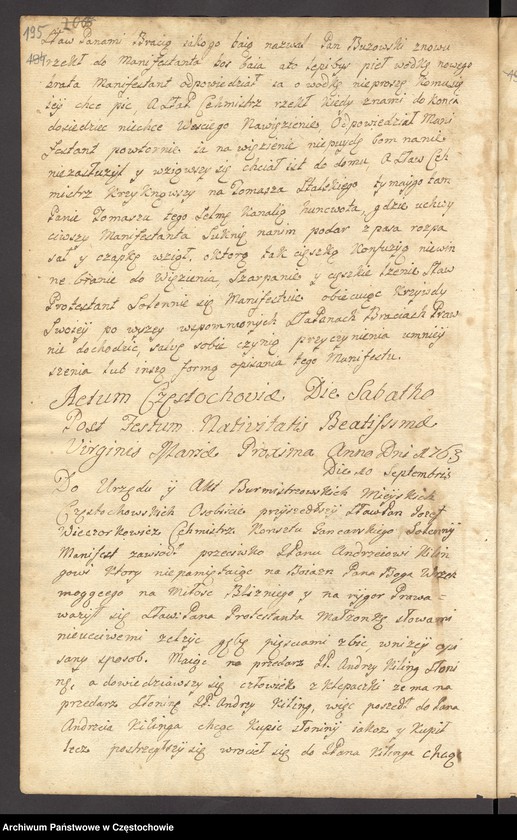 195
Sław Panami Bracią jakogo baią nazwał Pan Buzowski znowu
rzekł do Manifestanta łos baia ato lepibys pieł wodkę nowego
brata Manifestant odpowiedział ia o wodkę nieproszę Komu się
iey chce pic A Sław Cechmistrz rzekł kiedy znami do konca
dosiedziec niechce Wesciego Nawięzienie Odpowiedział Mani
festant powtornie ia na więzienie niepuydę bom nanie
niezasłuzył y wziąwszy się chciał iść do domu, A Sław Cech
mistrz krzyknąwszy na Tomasza Stalskiego tymaygo tam
Panie Tomaszu tego Selmę Kanalię huncwota, gdzie uchwy
ciwszy Manifestanta Suknię nanim podar z pasa rozpa
sał y czapkę wziął, oktorą tak cięszką Konfuzyą niewin
ne branie do Więzienia, Szarpanie y cięszkie Łzenie Sław
Protestant Solennie się Manifestuie obiecuiąc Krzywdy
Swoiey po wyszey wspomnionych Sła Panach Braciach Praw
nie dochodzic, salwę sobie czynią przyczynienia umniey
szenia lub inszą formą opisania tego Manifestu.
Actum Częstochoviæ Die Sabatho
Post Festum Nativitatis Beatissimæ
Virginis Mariæ Proxima Anno Dni 1763
Die 10 Septembris
Do Urzędu y Akt Burmistrzowskich Mieyskich
Częstochowskich Osobiscie przyszedszy Sław Pan Jozef
Wieczorkowicz Cechmistrz Konsztu Garncarskiego Solenny
Manifest zawodzi przeciwko JPanu Andrzeiowi Kilin
gowi ktory niepamiętaiąc na Boiazn Pana Boga Wszech
mogącego na Miłosc Blizniego y na rygor Prawa
wazył się Sław Pana Protestanta Małzonkę słowami
nieuczciwemi zelzyc gębę pięsciami zbic, wnizey opi
sany sposob. Maiąc na przedarz JP. Andrzy Kiling słoni
nę, a dowiedziawszy się człowiek z Kłepaczki ze ma na
przedarz słoninę JP. Andrzy Kiling, więc poszedł do Pana
Andrzeia Kilinga chcąc kupic słoniny iakoz y kupił
lecz postrzegłszy się wrocieł się do JPana Kilinga chcąc
Archiwum Państwowe w Częstochowie